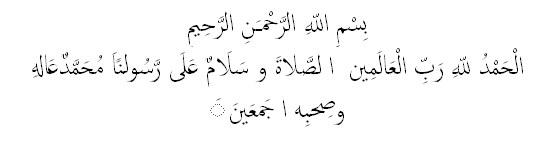 بِسْمِ اللّهِ الرَّحْمَـنِ الرَّحِيمِ
الْحَمْدُ للّهِ رَبِّ الْعَالَمِين ا لصَّلاةَ و سَلَامٌ عَلَى رَّسُولنَاً مُحَمَّدٌعَالهِ
وصِحبِه ا جَمعَينَ َ